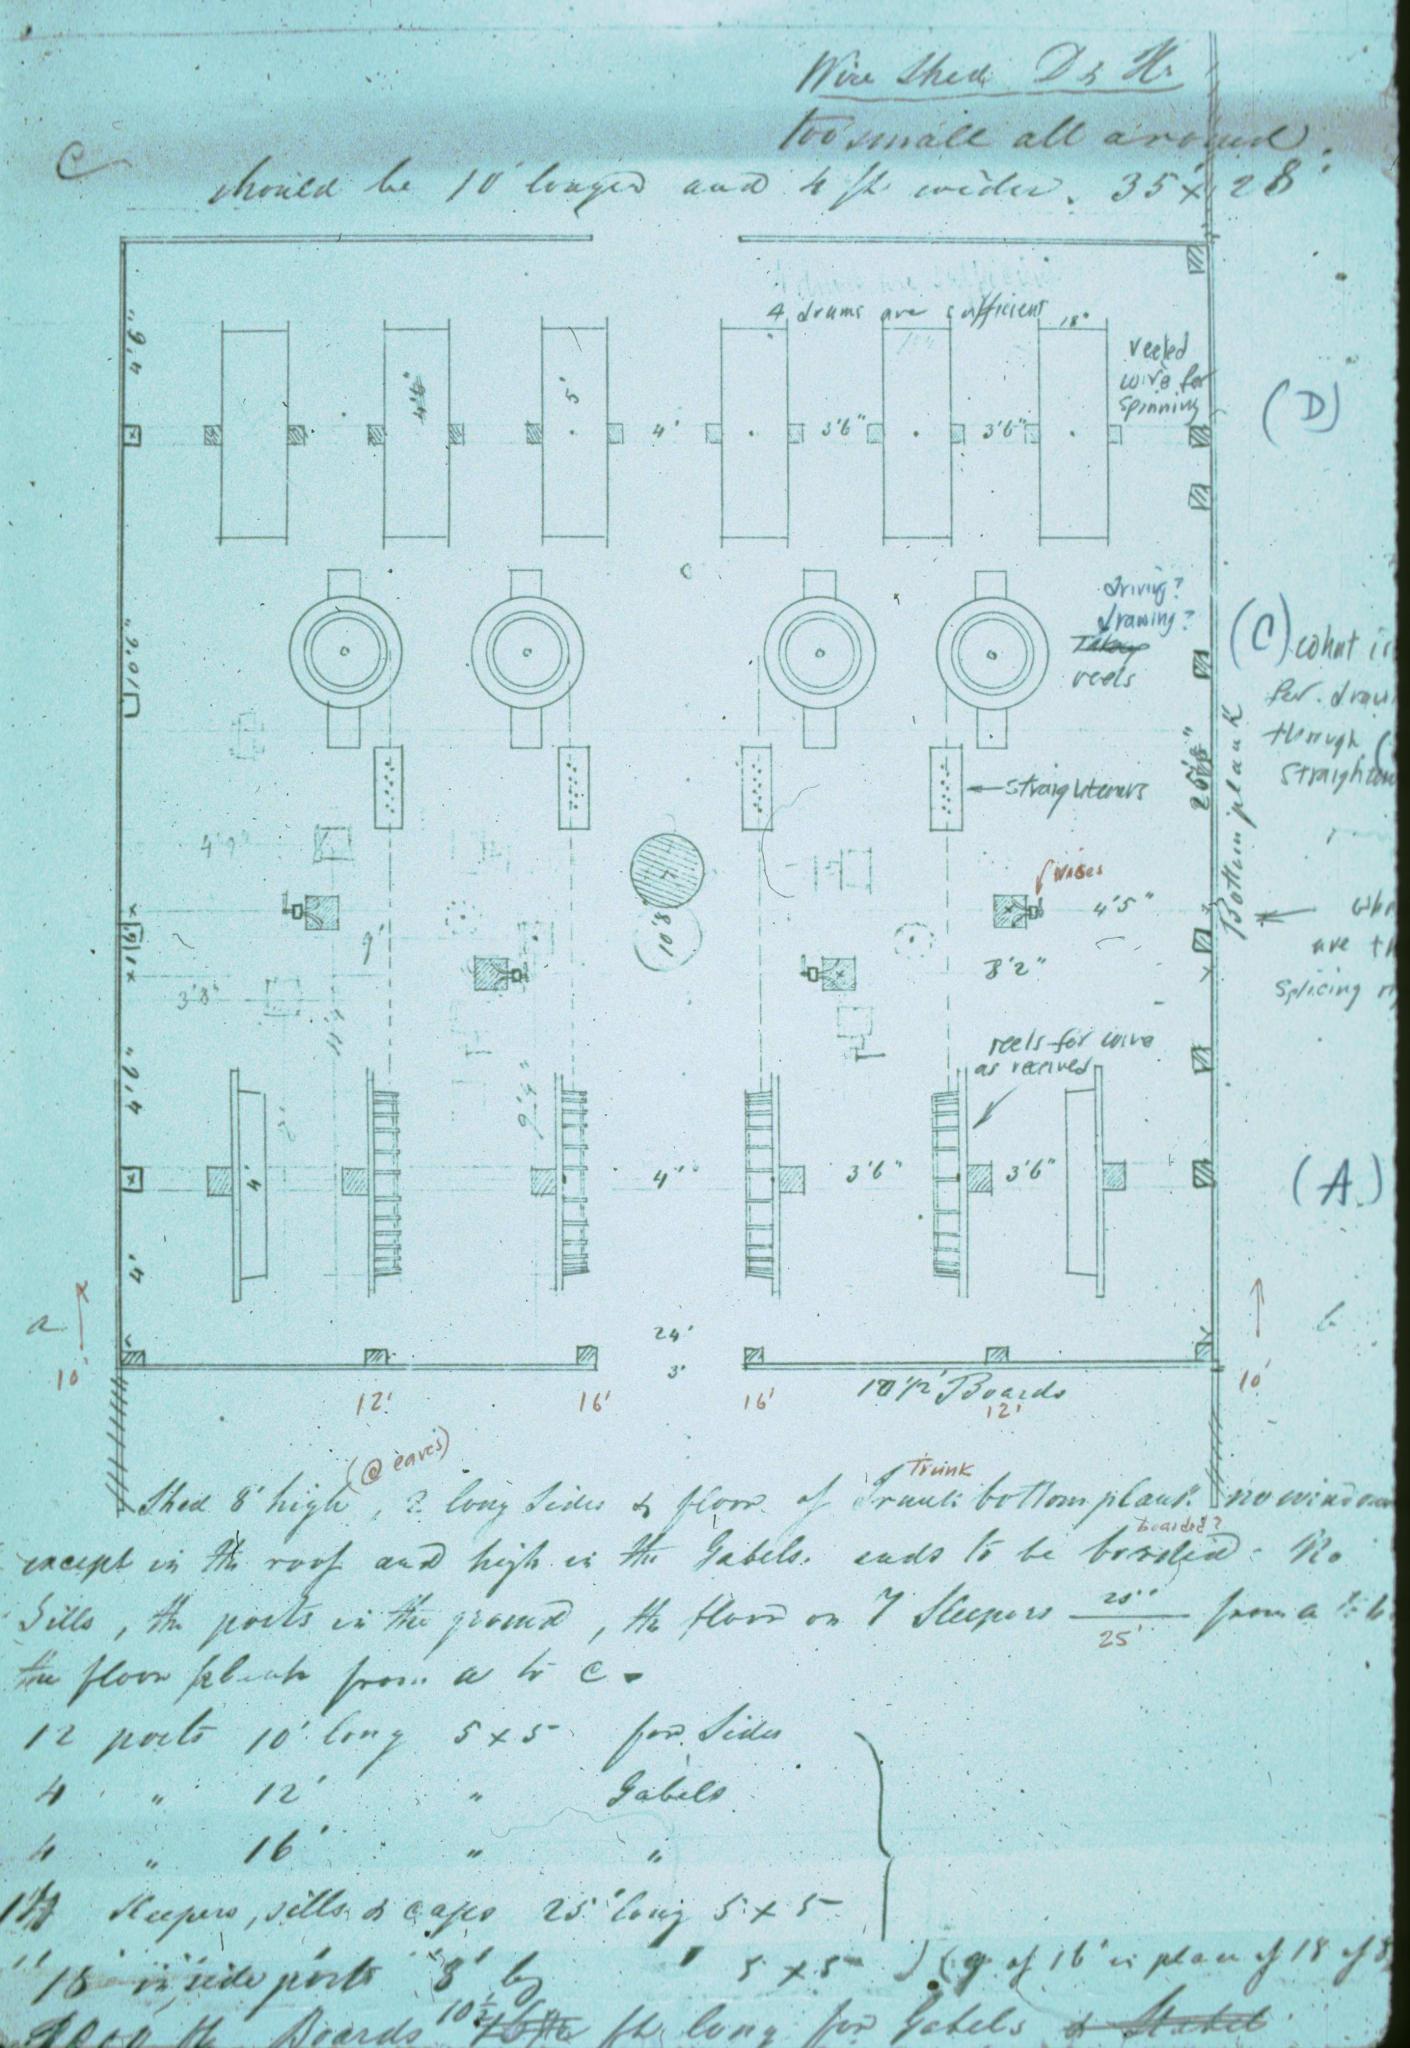 Wire Shed D & H.
too small all around.
C
should be 10' longer and 4 ft. wider. 35' x 28'
4 drums are sufficient
18"
9.4"
4'6"
5'
4'
3'6"
3'6"
reeled
wire for
spinning
(D)
driving?
drawing?
reels
10.2"
(C) what is
for
through
straighten
Bottom plank
straighteners
4'9"
vises
4'5"
10'8"
9'
8'2"
3'8"
are th
splicing
reels for wire
as received
9'4"
4'
4'
3'6"
3'6"
(A)
4'
a
10'
24'
3'
b
10'
12'
16'
16'
Boards
12'
(@ eaves)
Trunk
Shed 8' high, 2 long sides & floor of Trunk bottom plank no windows
boarded?
except in the roof and high in the Gabels. ends to be boarded. No
Sills, the posts in the ground, the floor on 7 Sleepers 25" from a to b
25'
the floor plank from a to c.
12 posts 10' long 5 x 5 for Sides
4 " 12' " Gabels
4 " 16' " "
Sleepers, sills & caps 25' long 5 x 5
18 inside posts 8' lg " 5 x 5 (9 of 16' in place of 18 of 8
10½
Boards ft long for Gabels